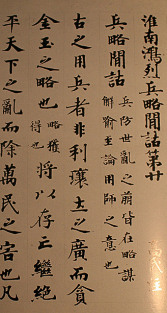 淮南鴻烈兵略閒詁第廿
兵略閒詁
兵防世亂之萌皆在略謀
解喻至論用師之意也
古之用兵者非利壤土之廣而貪
金玉之略也略獲得也將以存亡繼絕
平天下之亂而除萬民之害也凡